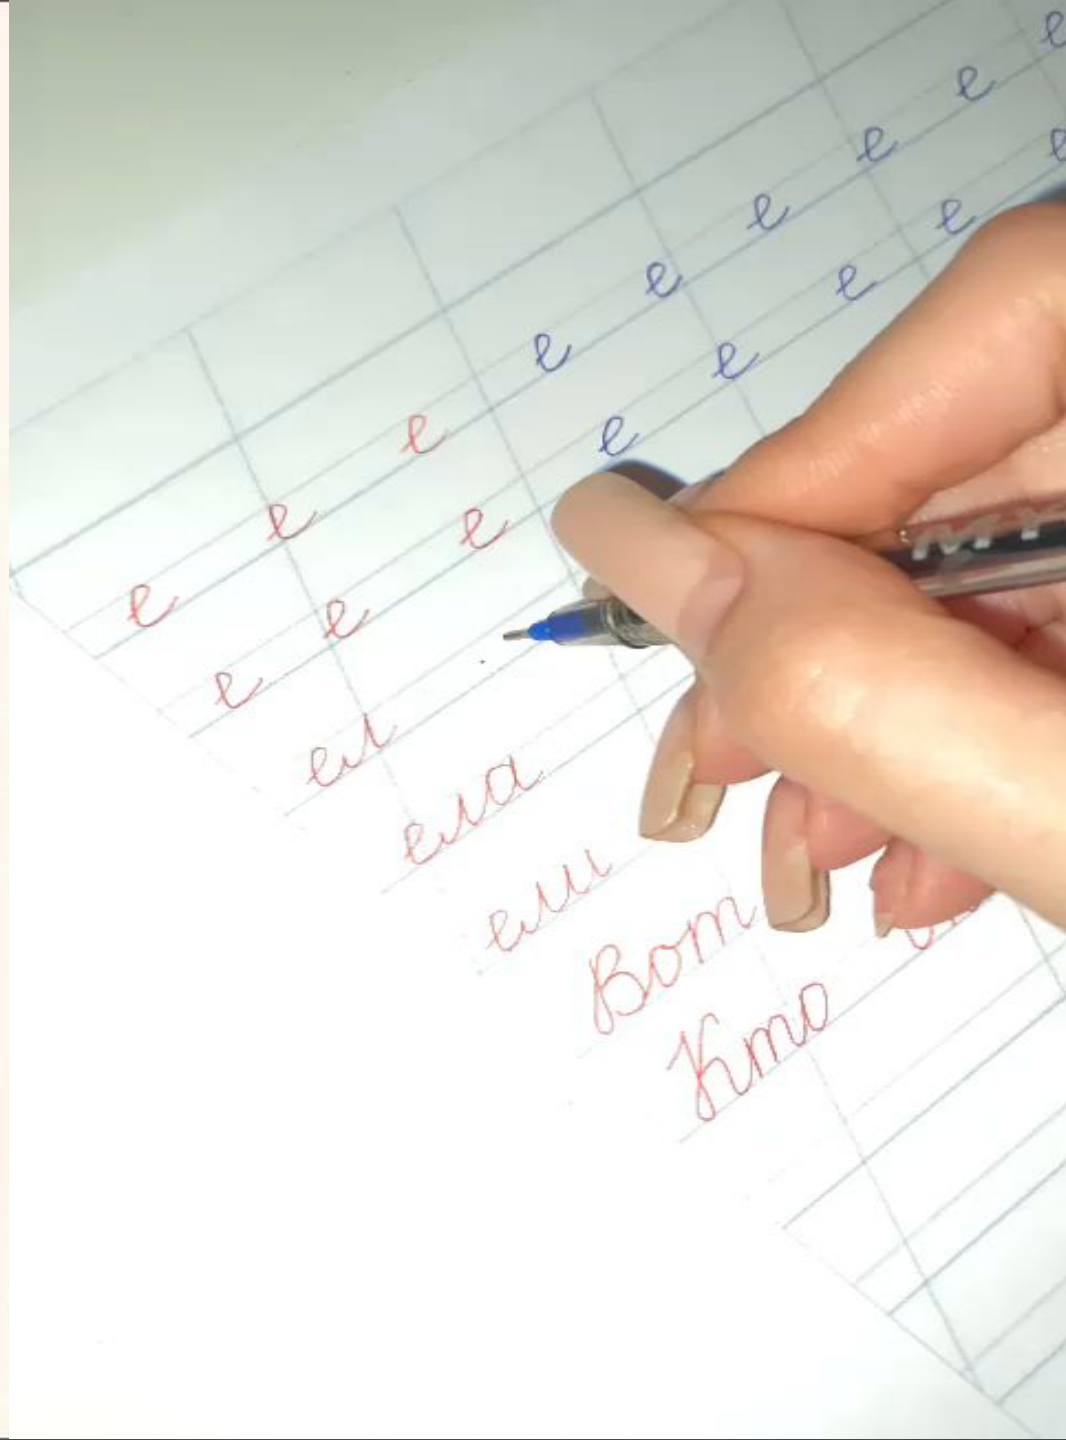 е е е е е е е е е
е е е е е е е е
ел
ела
ели
Вот
Кто
MY